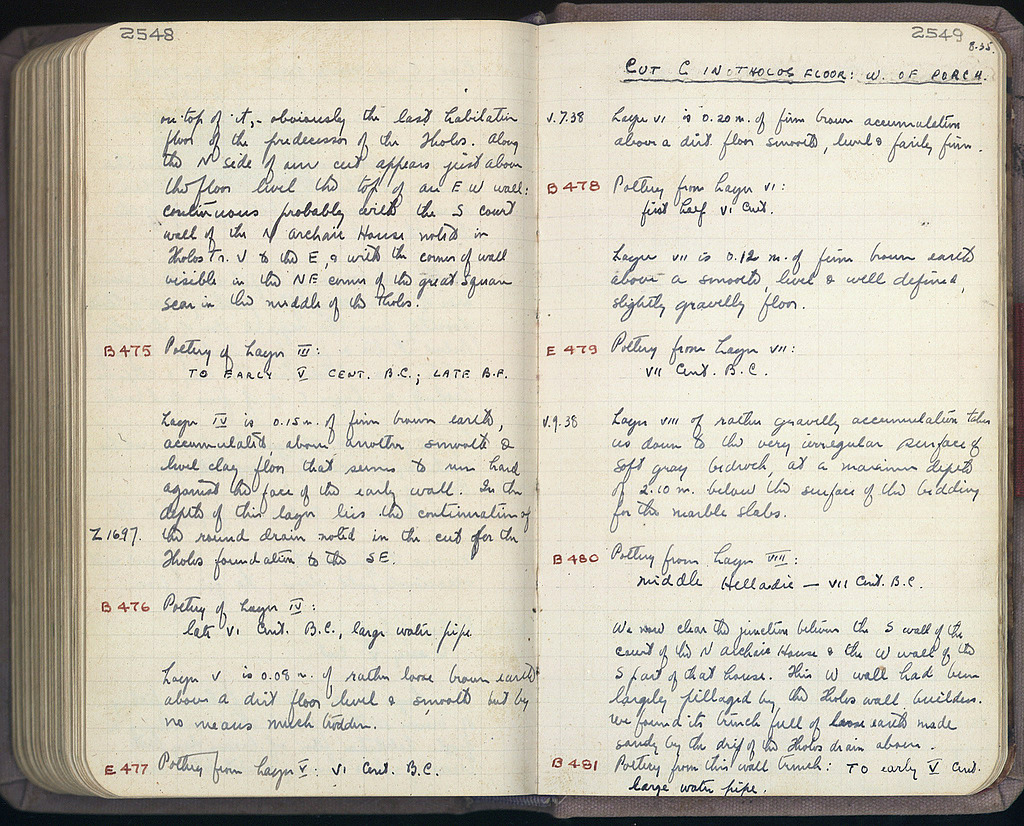 2548
on top of it, - obviously the last habitation
floor of the predecessor of the Tholos. Along
the N side of our cut appears just above
the floor level the top of an E W wall:
continuous probably with the S court
wall of the N Archaic House noted in
Tholos Tr. V to the E, & with the corner of wall
visible in the NE corner of the great square
scar in the middle of the Tholos.
B 475 Pottery of Layer III:
TO EARLY V CENT. B.C.; LATE B.F.
Layer IV is 0.15 m. of firm brown earth,
accumulated above another smooth &
level clay floor that seems to run hard
against the face of the early wall. In the
depth of this layer lies the continuation of
Z 1697. the round drain noted in the cut for the
Tholos foundation to the SE.
B 476 Pottery of Layer IV:
late VI Cent. B.C., large water pipe
Layer V is 0.08 m. of rather loose brown earth
above a dirt floor level & smooth but by
no means much trodden.
E 477 Pottery from Layer V: VI Cent. B.C.
2549
8.35.
CUT C IN THOLOS FLOOR: W. OF PORCH.
V.7.38 Layer VI is 0.20 m. of firm brown accumulation
above a dirt floor smooth, level & fairly firm.
B 478 Pottery from Layer VI:
first half VI Cent.
Layer VII is 0.12 m. of firm brown earth
above a smooth, level & well defined,
slightly gravelly floor.
E 479 Pottery from Layer VII:
VII Cent. B.C.
V.9.38 Layer VIII of rather gravelly accumulation takes
us down to the very irregular surface of
soft gray bedrock, at a maximum depth
of 2.10 m. below the surface of the bedding
for the marble slabs.
B 480 Pottery from Layer VIII:
middle Helladic — VII Cent. B.C.
We now clear the junction between the S wall of the
court of the N Archaic House & the W wall of the
S part of that house. This W wall had been
largely pillaged by the Tholos wall builders.
We found its trench full of loose earth made
sandy by the drip of the Tholos drain above.
B 481 Pottery from this wall trench: TO early V Cent.
large water pipe.